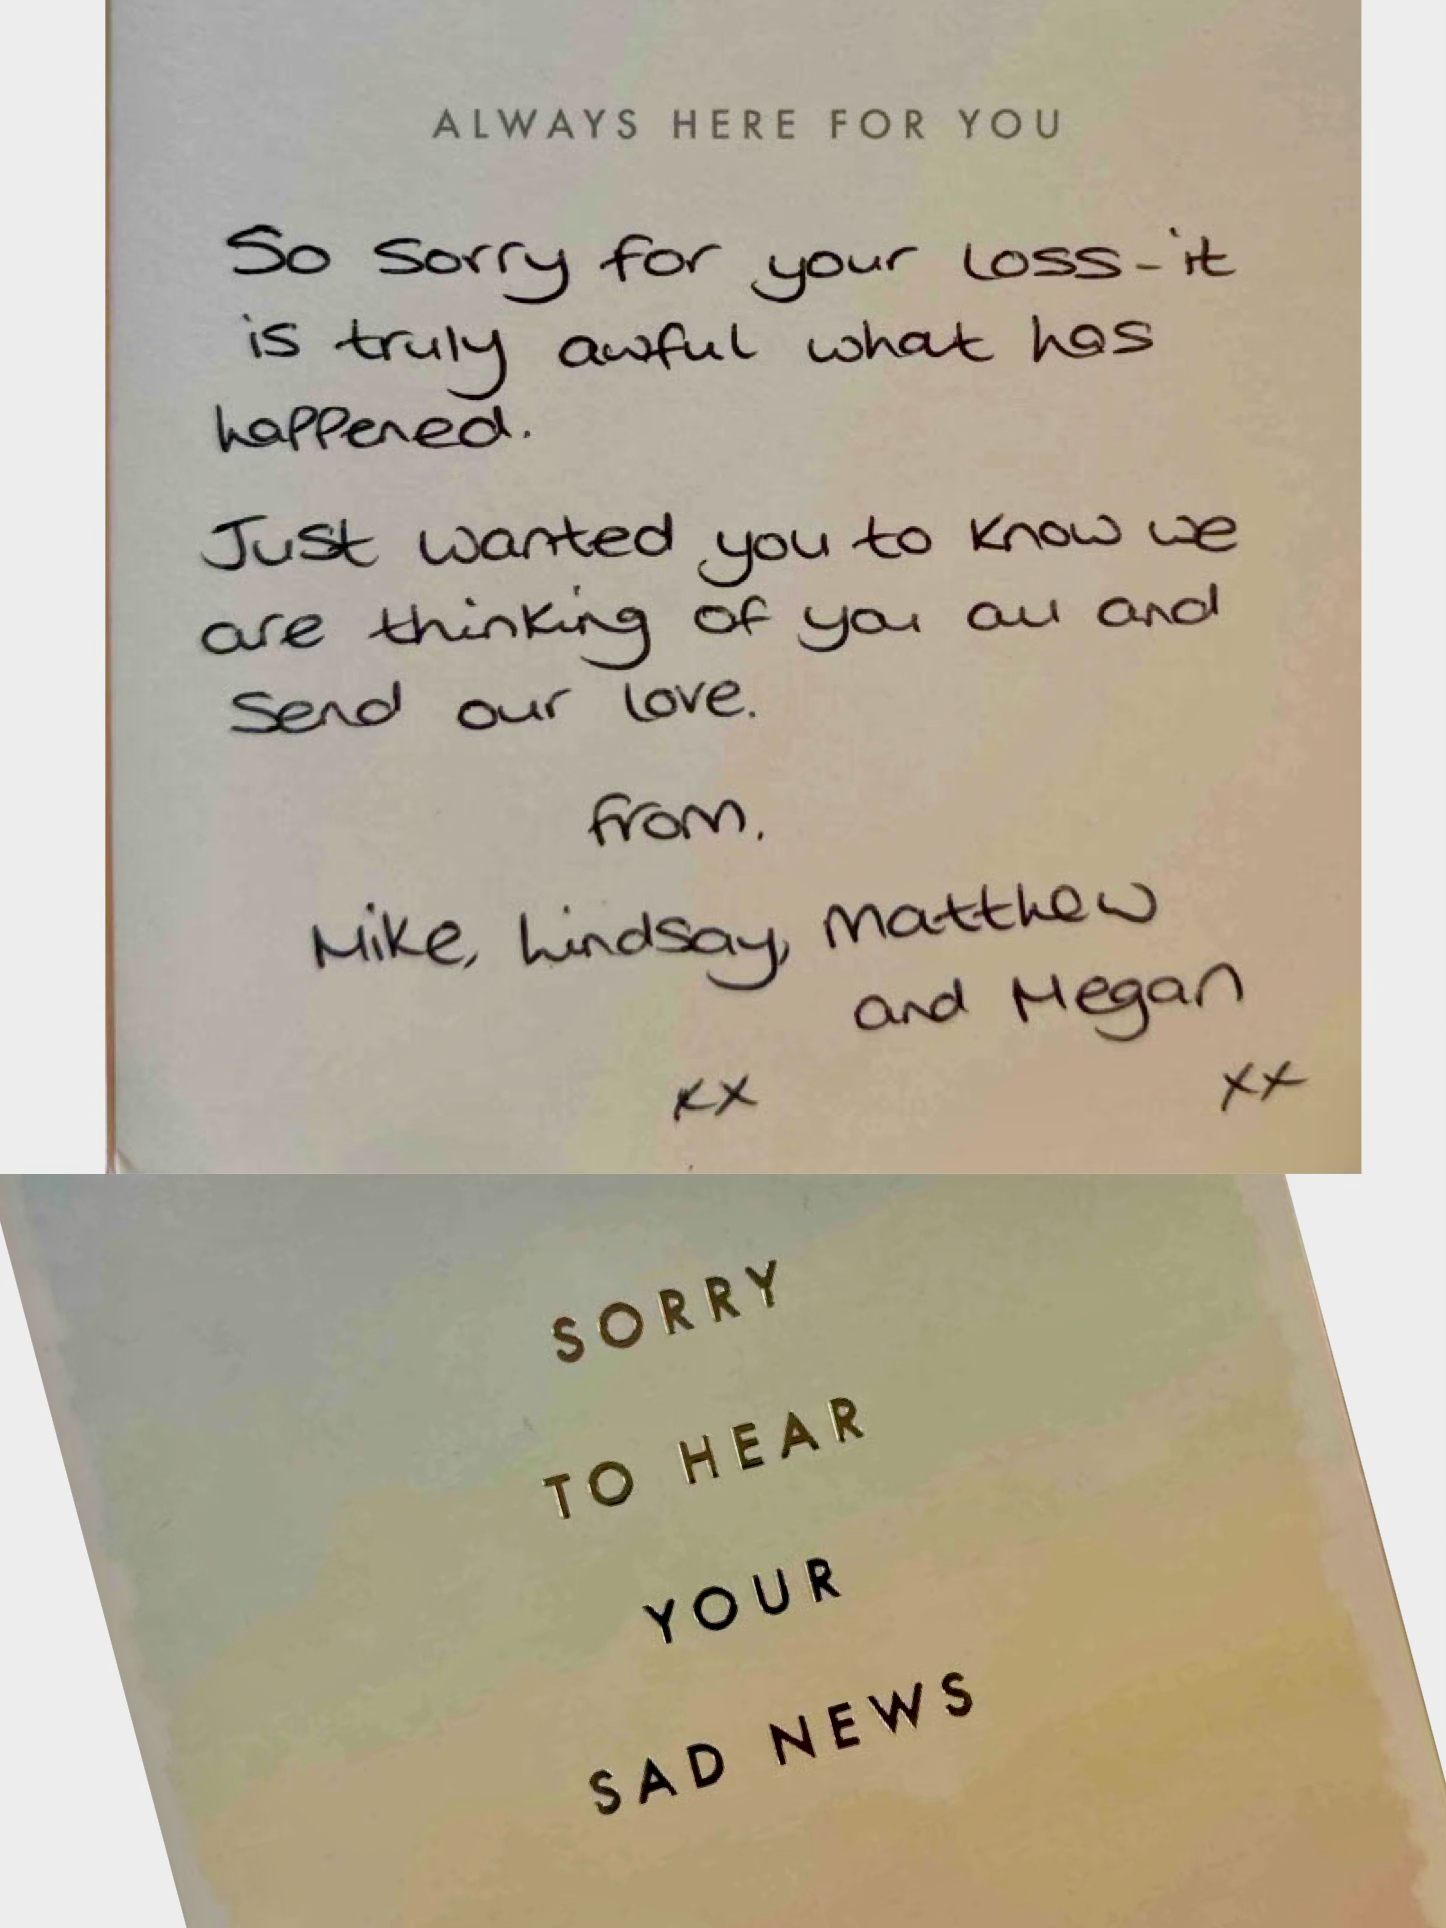 ALWAYS HERE FOR YOU
So sorry for your loss - it
is truly awful what has
happened.
Just wanted you to know we
are thinking of you all and
send our love.
from.
Mike, Lindsay, Matthew
and Megan
xx xx
SORRY
TO HEAR
YOUR
SAD NEWS